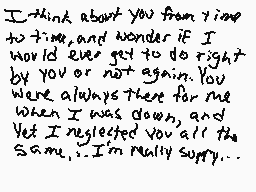 I think about you from time
to time, and wonder if I
would ever get to do right
by you or not again. You
were always there for me
when I was down, and
yet I neglected you all the
same,.. I'm really sorry...